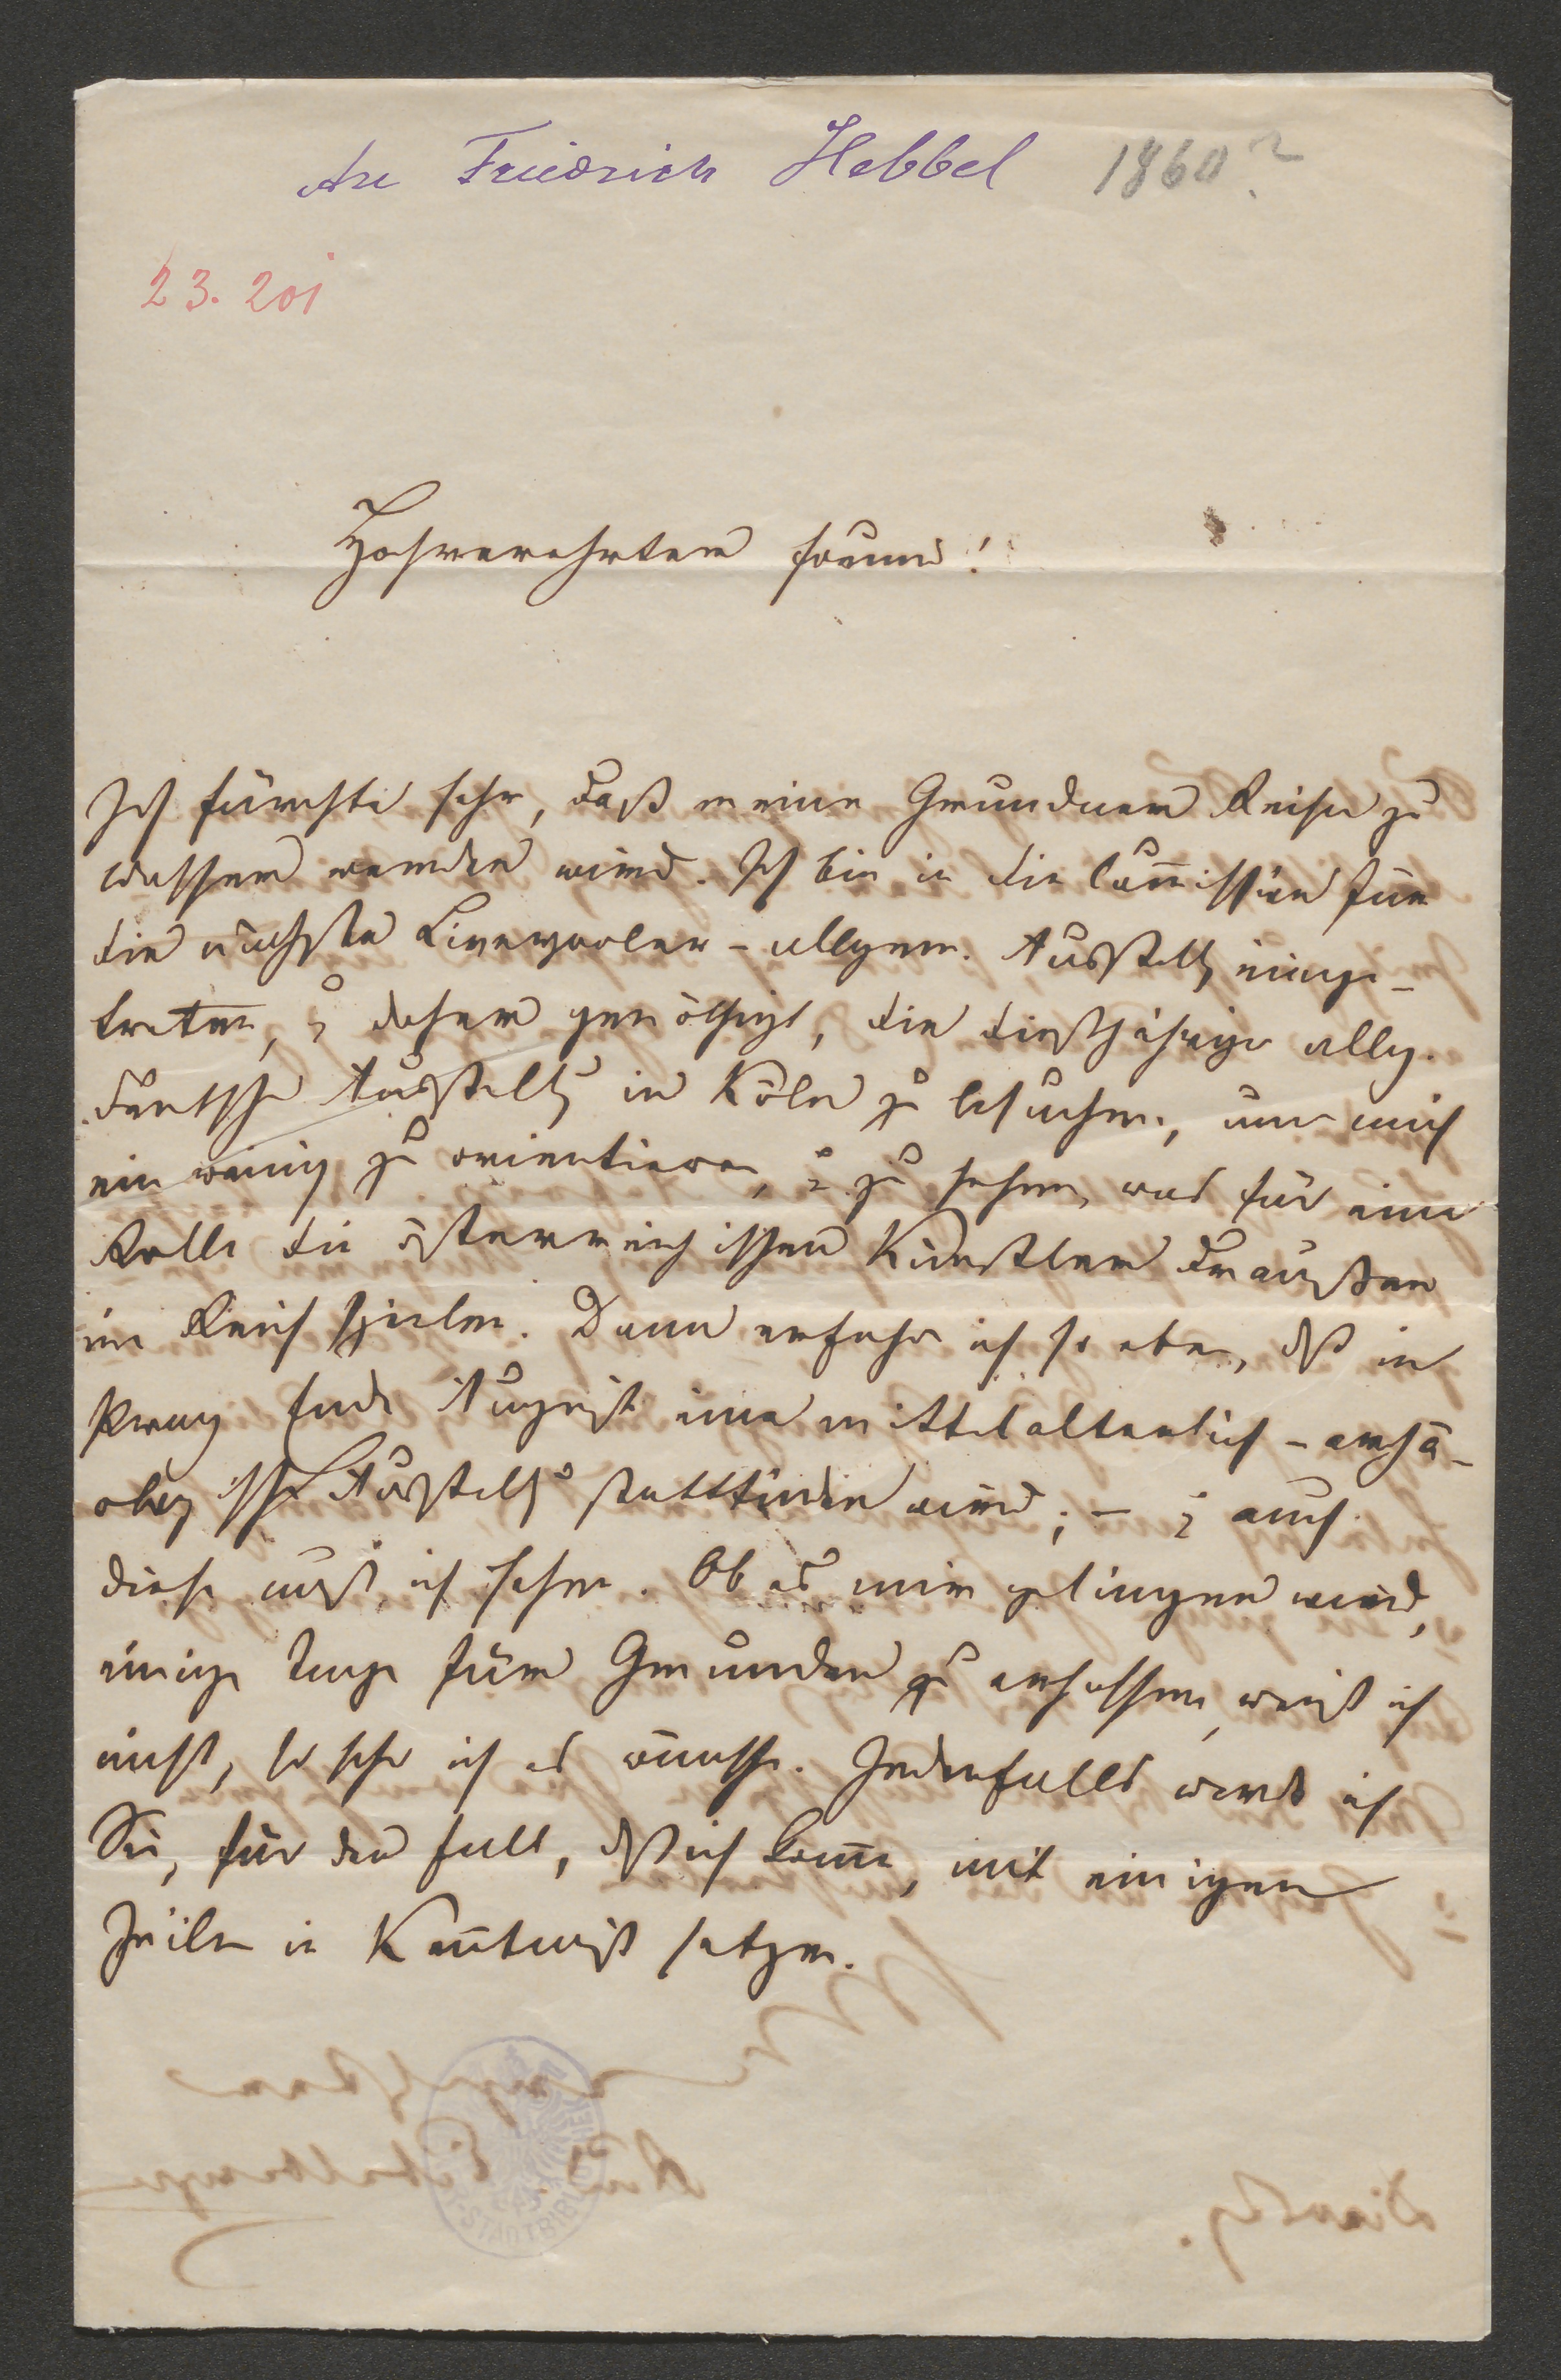 An Friedrich Hebbel 1860?
23.201
Hochverehrter Freund!
Ich fürchte sehr, daß meine Gmundner Reise zu
Wasser werden wird. Ich bin in die Com̅ission für
die nächste Liverpooler - allgem. Ausstellg einge-
treten, u daher genöthigt, die dießjährige allg.
deutsche Ausstellg in Köln zu besuchen, um mich
ein wenig zu orientieren, u zu sehen, was für eine
Rolle die österreichischen Künstler draußen
im Reich spielen. Dann erfahre ich so eben, dß in
Prag Ende August eine mittelalterlich - archä-
olog ische Ausstellg stattfinden wird; - u auch
diese muß ich sehen. Ob es mir gelingen wird,
einige Tage für Gmunden zu erhaschen, weiß ich
nicht, so sehr ich es wünsche. Jedenfalls werde ich
Sie, für den Fall, dß ich kom̅e, mit einigen
Zeilen in Ken̅tniß setzen.